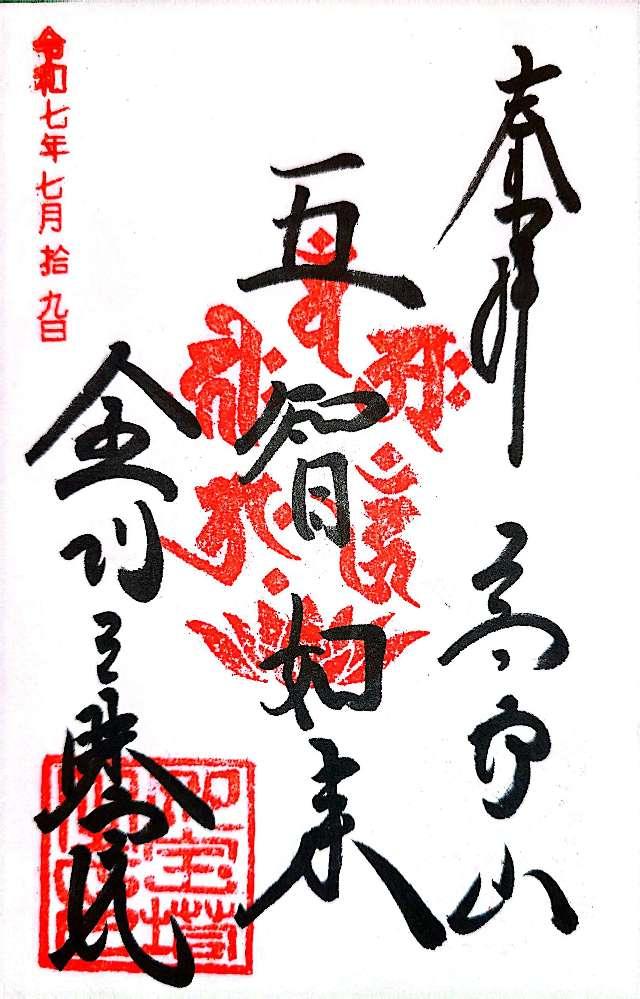 奉拝
高野山
五智如来
金剛三昧院
令和七年七月拾九日